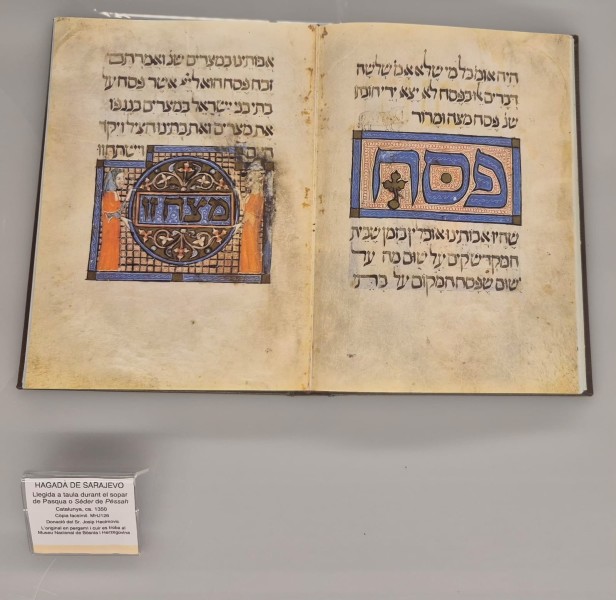 היה אומ׳ כל מי שלא אמ׳ שלשה
דברים אלו בפסח לא יצא ידי חובתו
פסח מצה ומרור
פסח
שהיו אבותינו אוכלין בזמן שבית
המקדש קים על שום מה על
שום שפסח המקום על בתי
אבותינו במצרים שנ׳ ואמרתם
זבח פסח הוא ליי׳ אשר פסח על
בתי בני ישראל במצרים בנגפו
את מצרים ואת בתינו הציל ויקד
וישתחוו
מצה זו
HAGADÀ DE SARAJEVO
Llegida a taula durant el sopar
de Pasqua o Séder de Péssah
Catalunya, ca. 1350
Còpia facsímil. MHJ126
Donació del Sr. Josip
L'original en pergamí i cuir es troba al
Museu Nacional de Bòsnia i Hertzegovina